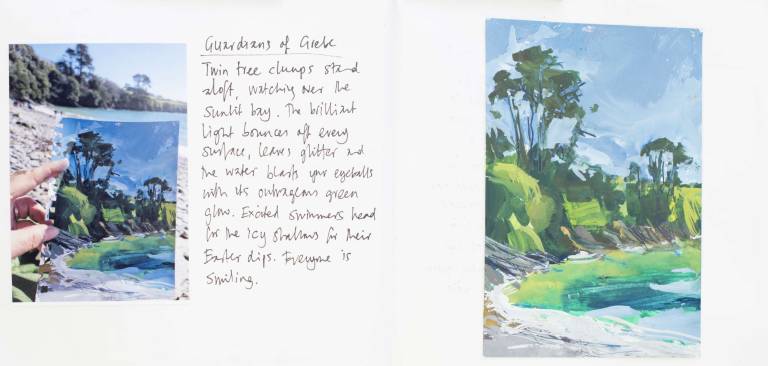 Guardians of Grebe
Twin tree clumps stand
aloft, watching over the
sunlit bay. The brilliant
light bounces off every
surface, leaves glitter and
the water blasts your eyeballs
with its outrageous green
glow. Excited swimmers head
for the icy shallows for their
Easter dips. Everyone is
smiling.